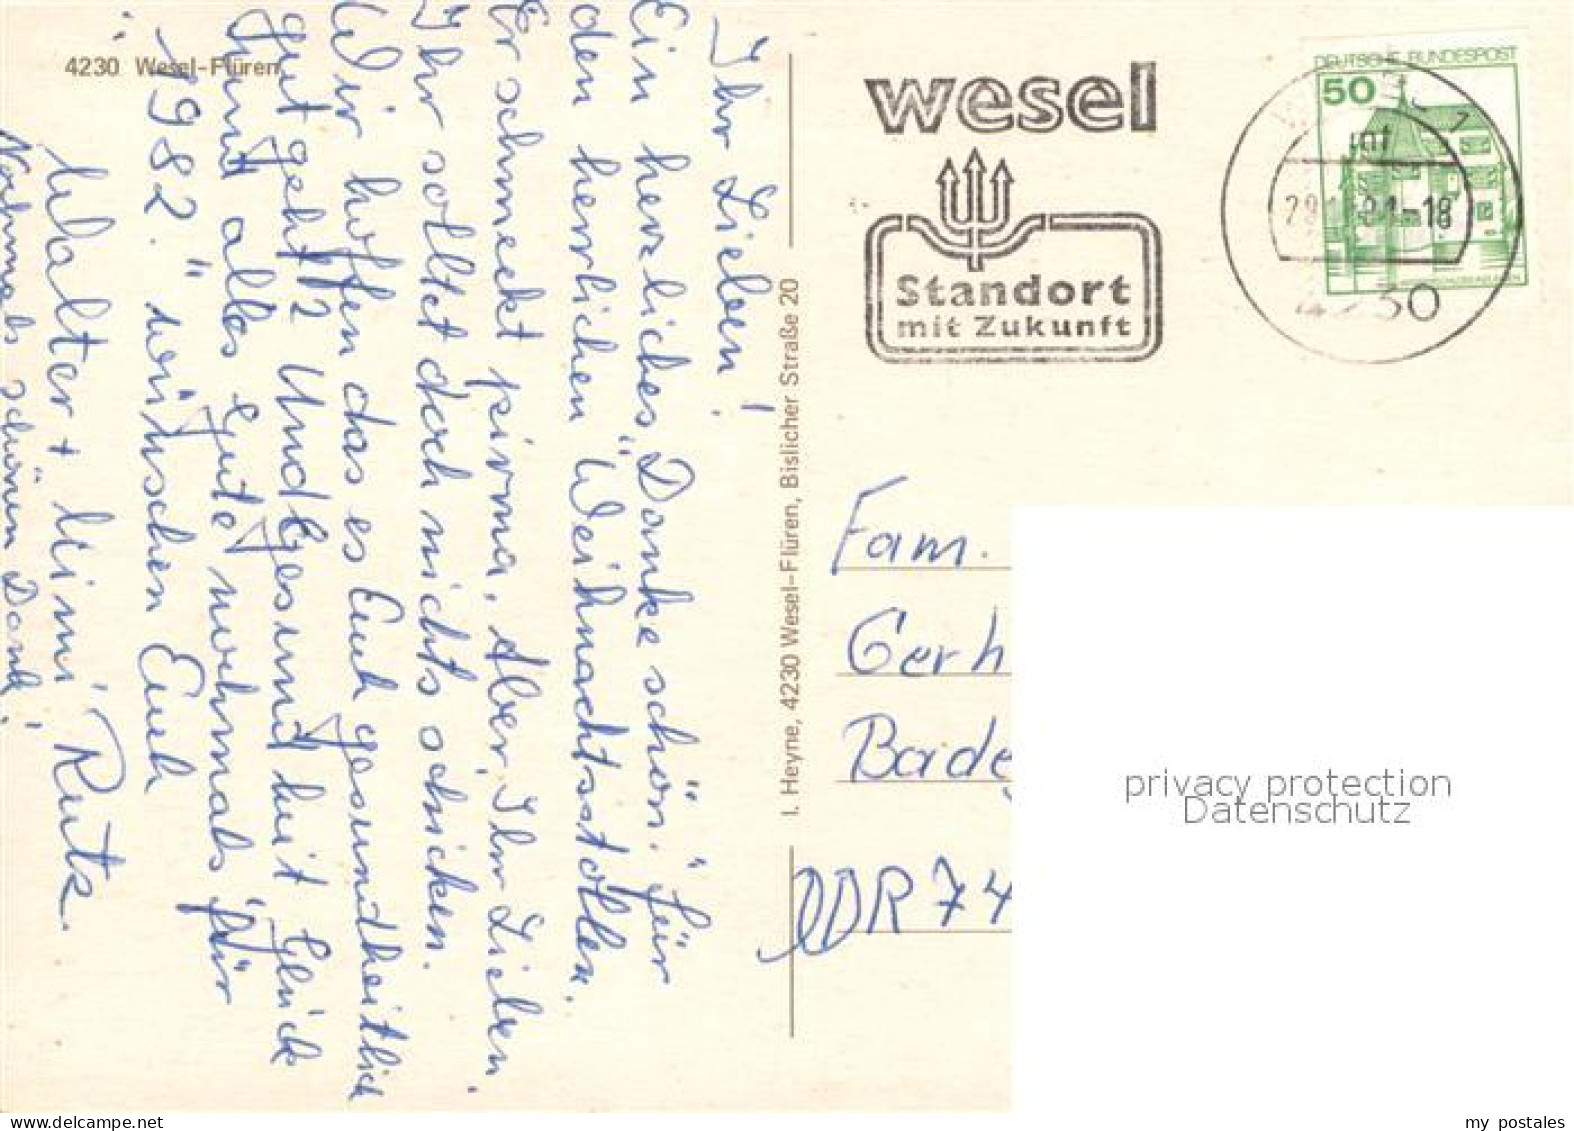 4230 Wesel-Flüren
Ihr Lieben!
Ein herzliches "Danke schön." für
den herrlichen Weihnachtsstollen.
Er schmeckt prima. Aber, Ihr Lieben,
Ihr solltet doch nichts schicken.
Wir hoffen das es Euch gesundheitlich
gut geht!? Und Gesundheit Glück
und alles Gute nochmals für
"1982." wünschen Euch
Walter + Mimi Rutz.
Nochmals schönen Dank!
I. Heyne, 4230 Wesel-Flüren, Bislicher Straße 20
wesel
Standort
mit Zukunft
DEUTSCHE BUNDESPOST
50
4230
Fam.
Gerh
Bade
DDR 74
privacy protection
Datenschutz
my postales
www.delcampe.net